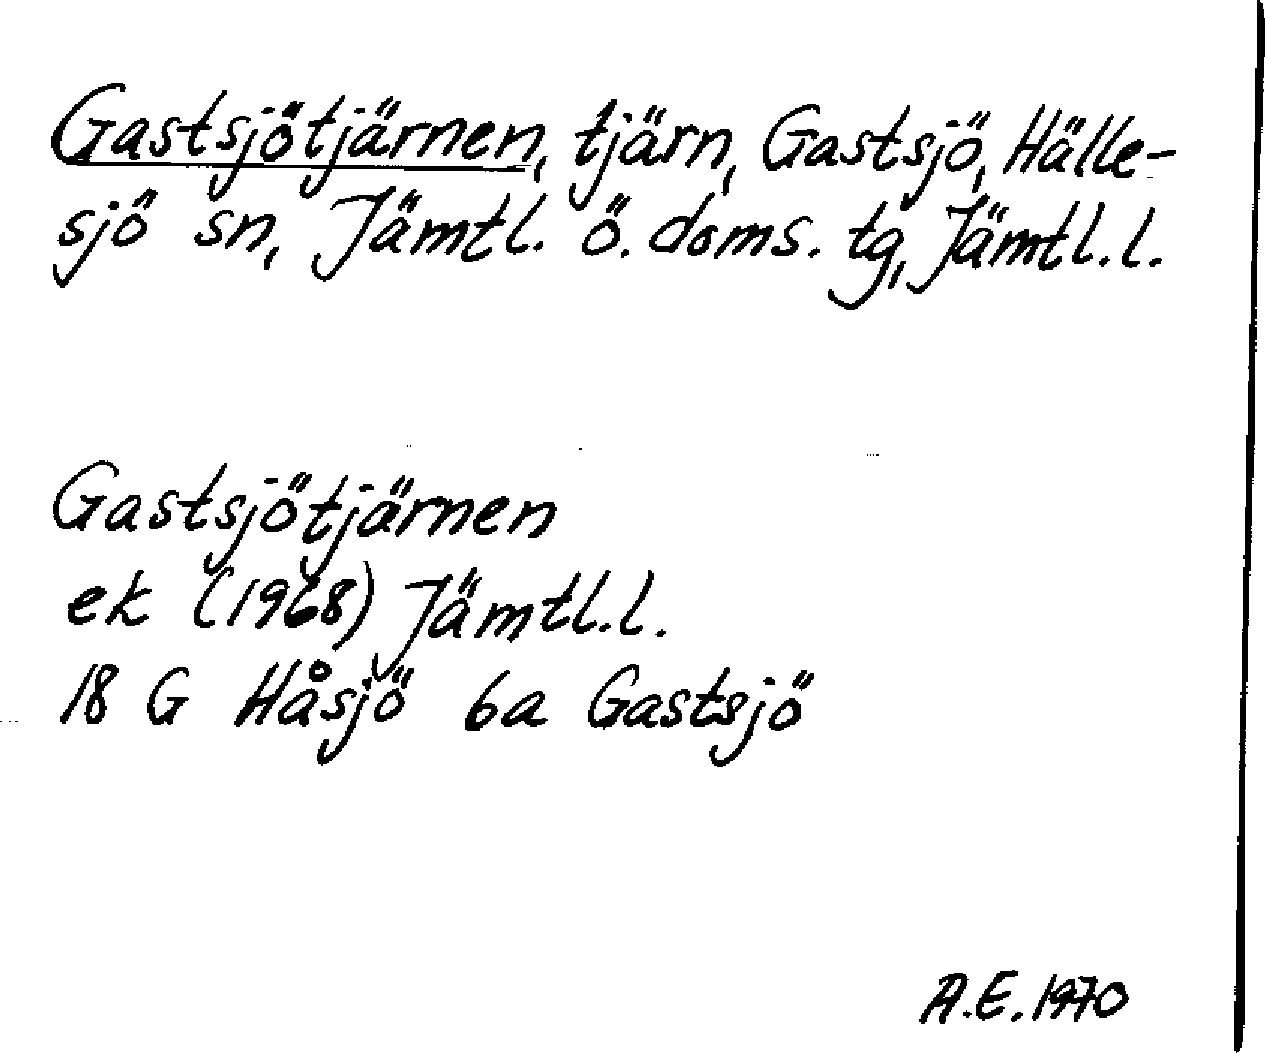 Gastsjötjärnen, tjärn, Gastsjö, Hälle-
sjö sn, Jämtl. ö. doms. tg, Jämtl.l.
Gastsjötjärnen
ek (1968) Jämtl.l.
18 G Håsjö 6a Gastsjö
A.E. 1970